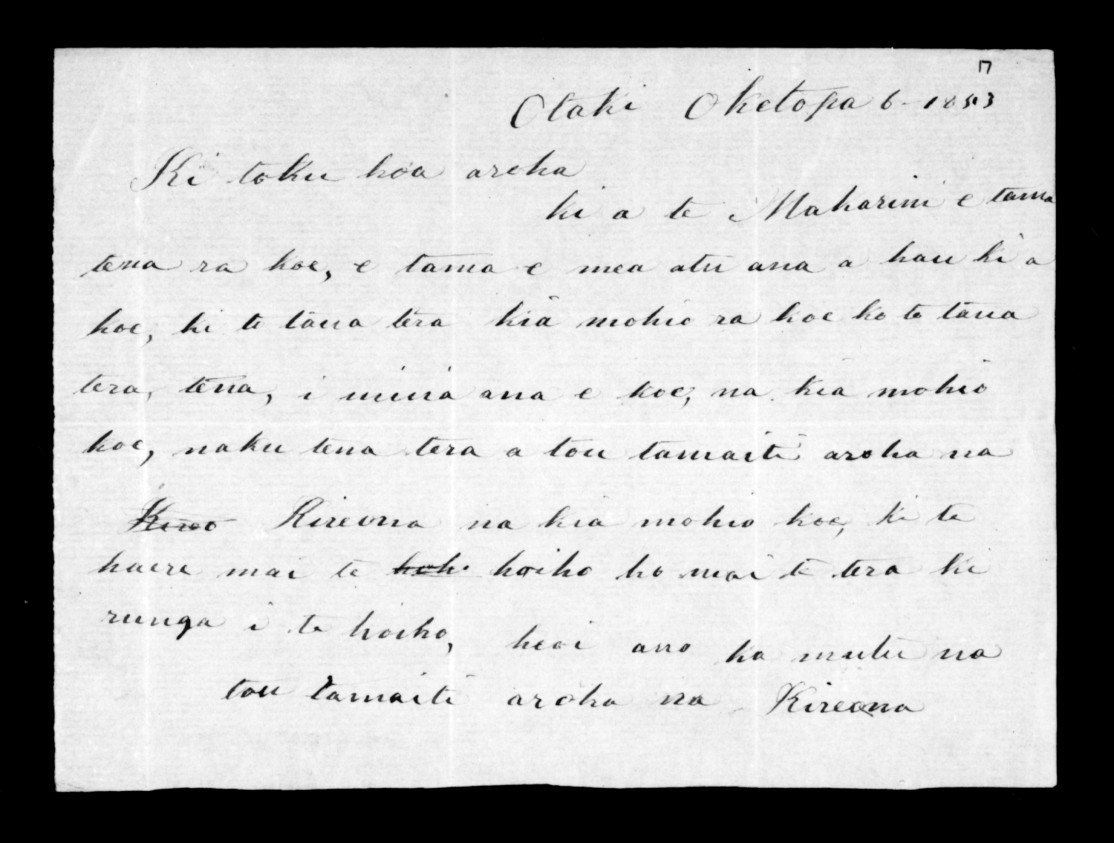 17
Otaki Oketopa 6 - 1853
Ki toku hoa aroha
ki a te Makarini e tama
tena ra koe, e tama e mea atu ana a hau ki a
koe, ki te taua tera kia mohio ra koe ko te taua
tera, tena, i inina ana e koe, na kia mohio
koe, naku tena tera a tou tamaiti aroha na
Kireona na kia mohio koe, ki te
haere mai te hoiho ho mai te tera ki
runga i te hoiho, heoi ano ka mutu na
tou tamaiti aroha na Kireona